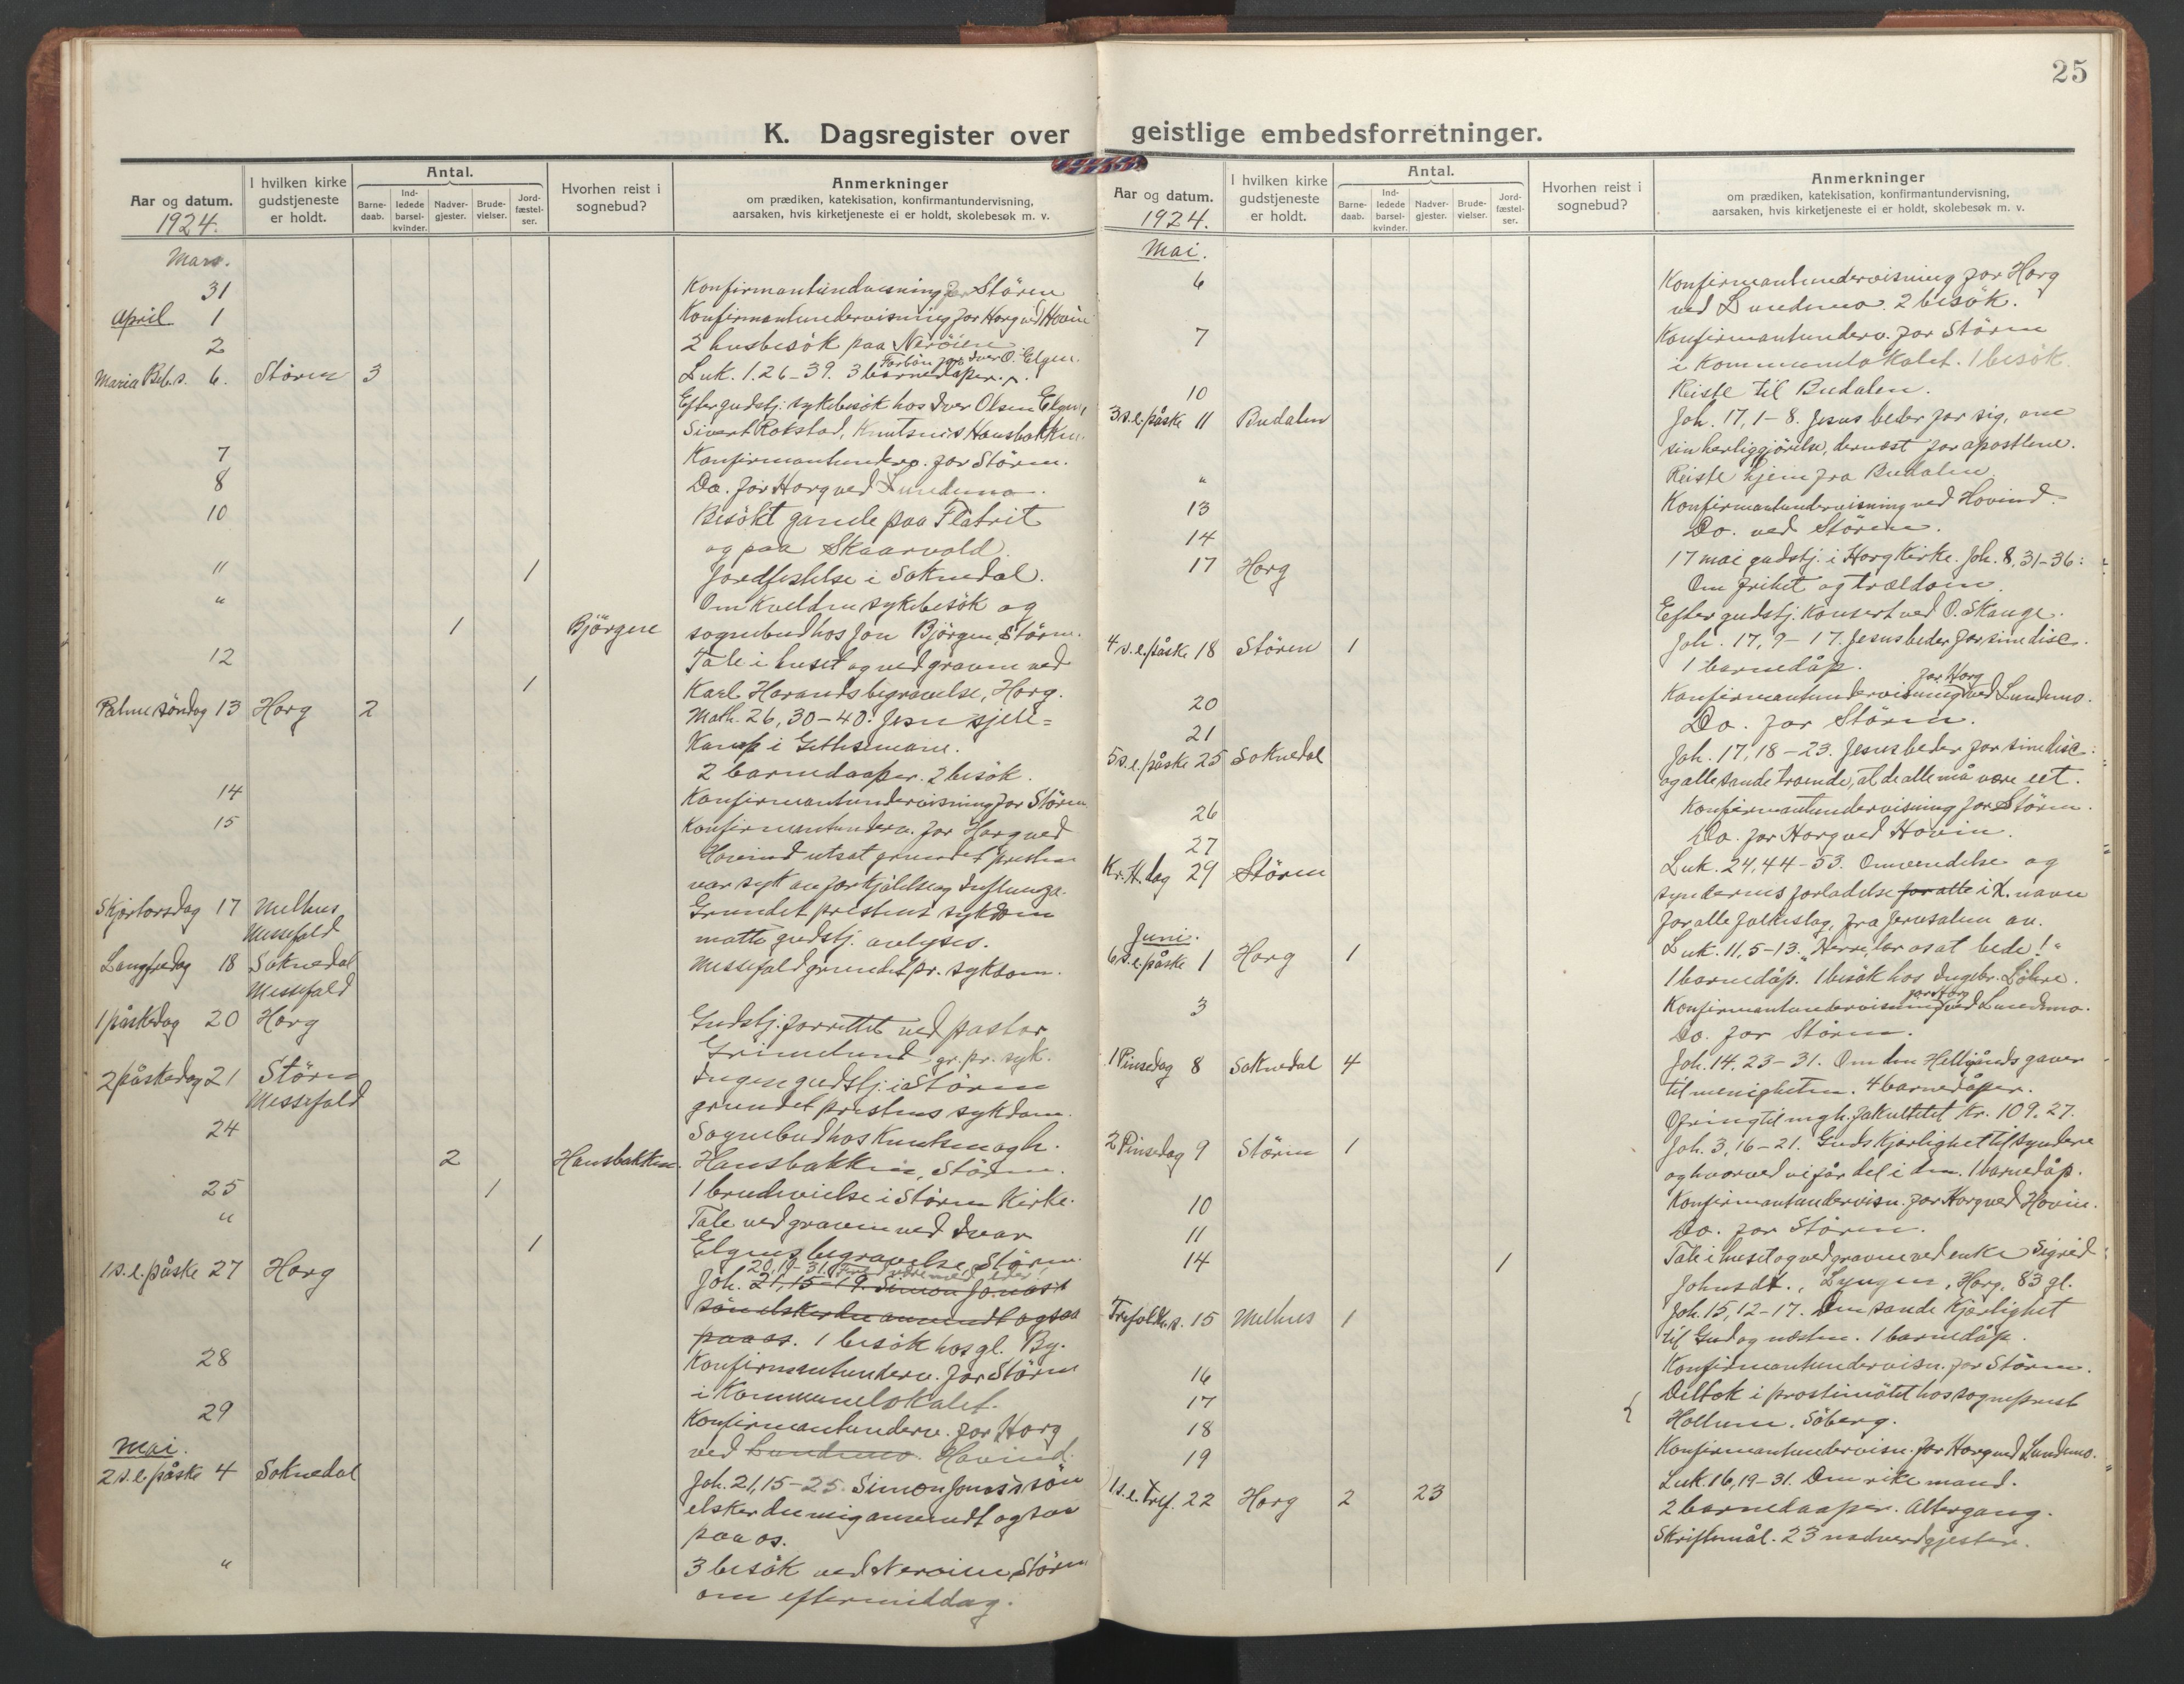 25
K. Dagsregister over geistlige embedsforretninger.
Aar og datum.
1924.
I hvilken kirke gudstjeneste er holdt.
Antal.
Barnedaab.
Indledede barselkvinder.
Nadvergjester.
Brudevielser.
Jordfæstelser.
Hvorhen reist i sognebud?
Anmerkninger
om prædiken, katekisation, konfirmantundervisning,
aarsaken, hvis kirketjeneste ei er holdt, skolebesøk m. v.
Mars.
31 Konfirmantundvisning for Støren
April 1 Konfirmantundervisning for Horg ved Hovin
2 2 husbesøk paa Nerøien
Maria Beb.s. 6. Støren 3 Luk. 1.26-39. 3 barnedaaper. Forbön for Iver O. Elgen.
Efter gudstj. sykebesøk hos Iver Olsen Elgen,
Sivert Rokstad, Knutsens Hansbakken.
7 Konfirmantunderv. for Støren.
8 Do. for Horg ved Lundemo.
10 Besøkt gamle paa Flatrit
og paa Skaarvold.
11 1 Jordfestelse i Soknedal.
" Om kvelden sykebesøk og
1 Bjørgen sognebud hos Jon Bjørgen, Støren.
12 Tale i huset og ved graven ved
1 Karl Horands begravelse, Horg.
Palmesöndag 13 Horg 2 Math. 26, 30-40. Jesu sjele=
kamp i Gethsemane.
2 barnedaaper. 2 besøk.
14 Konfirmantundervisning for Støren
15 Konfirmantunderv. for Horg ved
Hovind utsat grundet presten
var syk av forkjølelse og Influenza.
Skjærtorsdag 17 Melhus Grundet prestens sykdom
Messefald maatte gudstj. avlyses.
Langfredag 18 Soknedal Messefald grundet pr. sykdom.
Messefald
1 påskedag 20 Horg Gudstj. forrettet ved pastor
Grimelund gr. pr. syk.
2 påskedag 21 Støren Ingen gudstj. i Støren
Messefald grundet prestens sykdom.
24 Sognebud hos Knutsen og h.
2 Hansbakken. Hansbakken, Støren.
25 1 1 brudevielse i Støren Kirke.
" Tale ved graven ved Ivar
1 Elgens begravelse Støren.
1 s.e. påske 27 Horg Joh. 21,15-19. Simon Jonas's 20,19-31. Fred være med eder!
søn elsker du
paa os. 1 besøk hos gl. By.
28 Konfirmantunderv. for Støren
i Kommunelokalet.
29 Konfirmantunderv. for Horg
ved Lundemo. Hovind.
Mai.
2 s.e. påske 4 Soknedal Joh. 21,15-25. Simon Jonas's søn
elsker du mig anvendt ogsaa
paa os.
" 3 besøk ved Nerøien, Støren
om eftermiddag.
Aar og datum.
1924.
I hvilken kirke gudstjeneste er holdt.
Antal.
Barnedaab.
Indledede barselkvinder.
Nadvergjester.
Brudevielser.
Jordfæstelser.
Hvorhen reist i sognebud?
Anmerkninger
om prædiken, katekisation, konfirmantundervisning,
aarsaken, hvis kirketjeneste ei er holdt, skolebesøk m. v.
Mai.
6 Konfirmantundervisning for Horg
ved Lundemo. 2 besøk.
7 Konfirmantunderv. for Støren
i Kommunelokalet. 1 besøk.
10 Reiste til Budalen.
3 s.e. påske 11 Budalen Joh. 17, 1-8. Jesus beder for sig, om
sin herliggjörelse, dernæst for apostlene.
" Reiste hjem fra Budalen
13 Konfirmantundervisning ved Hovind.
14 Do. ved Støren.
17 Horg 17 mai gudstj. i Horg Kirke. Joh. 8, 31-36:
Om frihet og trældom.
Efter gudstj. konsert ved O. Skauge.
4 s.e. påske 18 Støren 1 Joh. 17, 9-17. Jesus beder for sine disc.
1 barnedåp.
20 Konfirmantundervisning for Horg ved Lundemo.
21 Do. for Støren.
5 s.e. påske 25 Soknedal Joh. 17, 18-23. Jesus beder for sine disc.
og alle sande troende, at de alle må være eet.
26 Konfirmantundervisning for Støren.
27 Do. for Horg ved Hovin.
Kr. H. dag 29 Støren Luk. 24, 44-53. Omvendelse og
syndernes forladelse for alle i X. navn
for alle folkeslag, fra Jerusalem av.
Juni.
6 s.e. påske 1 Horg 1 Luk. 11, 5-13. "Herre, lær os at bede!"
1 barnedåp. 1 besøk hos Ingebr. Løhre.
3 Konfirmantundervisning for Horg ved Lundemo.
Do. for Støren.
1 Pinsedag 8 Soknedal 4 Joh. 14, 23-31. Om den Helligånds gaver
til menigheten. 4 barnedåper.
Ofring til mgh. fakultetet Kr. 109.27.
2 Pinsedag 9 Støren 1 Joh. 3, 16-21. Guds kjærlighet til syndere
og hvorved vi får del i den. 1 barnedåp.
10 Konfirmantundervisn. for Horg ved Hovin.
11 Do. for Støren.
14 1 Tale i huset og ved graven ved enke Sigrid
Johnsdt., Lyngen, Horg, 83 gl.
Trefoldh.s. 15 Melhus 1 Joh. 15, 12-17. Den sande kjærlighet
til Gud og næsten. 1 barnedåp.
16 Konfirmantundervisn. for Støren.
17 Deltok i prostimötet hos sogneprest
18 Hollum, Söberg.
19 Konfirmantundervisn. for Horg ved Lundemo.
1 s.e. Tref. 22 Horg 2 23 Luk. 16, 19-31. Den rike mand.
2 barnedaaper. Altergang.
Skriftemål. 23 nadverdgjester.